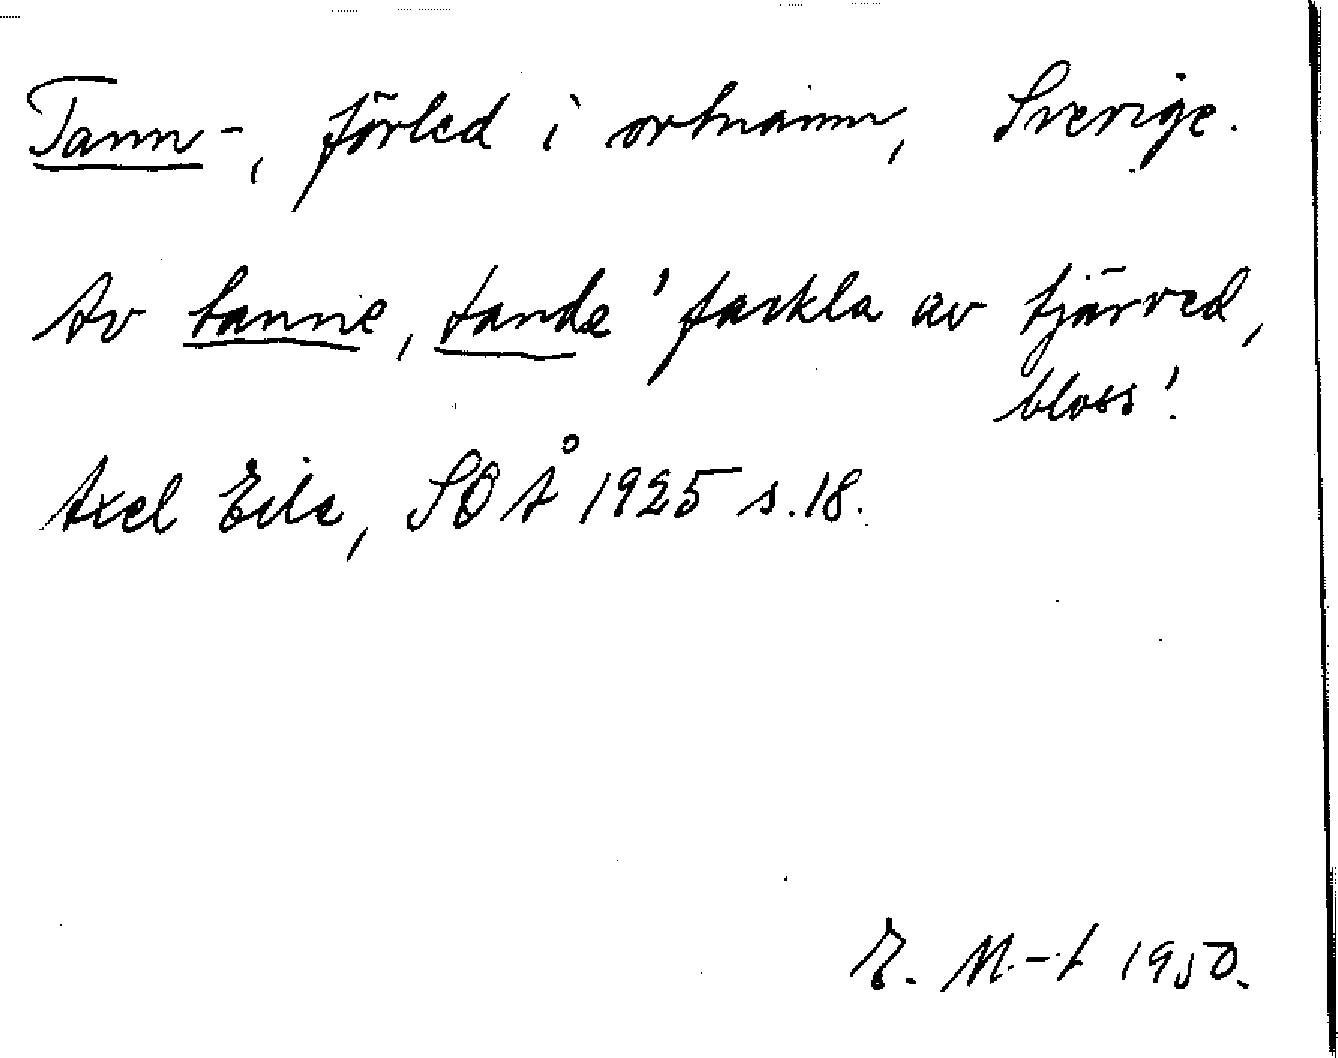 Tann-, förled i ortnamn, Sverige.
Av tanne, tande 'fackla av tjärved,
bloss'.
Axel Eile, SOÅ 1925 s. 18.
E. M-t 1950.